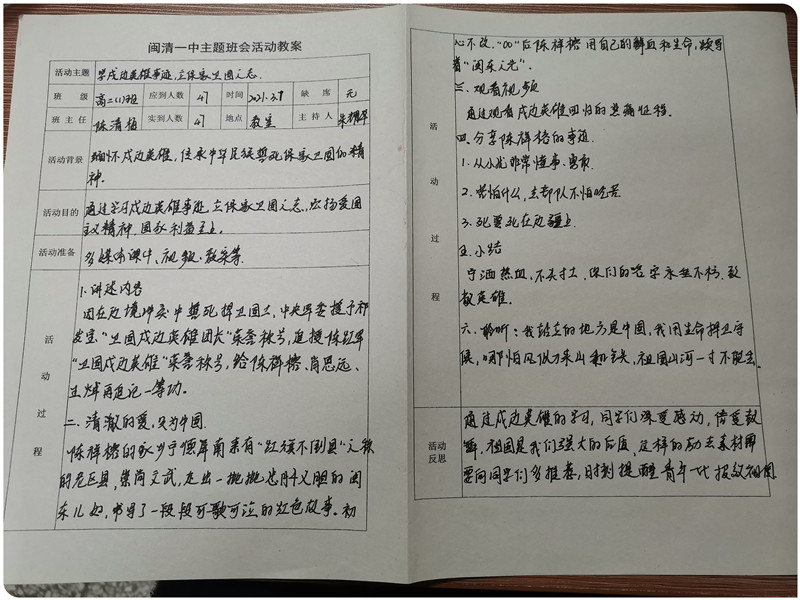 闽清一中主题班会活动教案
活动主题 学戍边英雄事迹,立保家卫国之志.
班 级 高二(1)班 应到人数 47 时间 2021.3.1 缺 席 无
班主任 陈清 实到人数 47 地点 教室 主持人 朱
活动背景 缅怀戍边英雄,传承中华民族誓死保家卫国的精
神.
活动目的 通过学习戍边英雄事迹,立保家卫国之志,宏扬爱国
主义精神.国家利益至上.
活动准备 多媒体课件、视频、教案等
活动过程
1.讲述内容
因在边境冲突中誓死捍卫国土,中央军委授予祁
发宝“卫国戍边英雄团长”荣誉称号,追授陈红军
“卫国戍边英雄”荣誉称号,给陈祥榕、肖思远、
王焯冉追记一等功。
二.清澈的爱,只为中国.
陈祥榕的家乡宁德屏南素有“红旗不倒县”之称
的老区县,崇尚文武,走出一批批忠肝义胆的闽
东儿女,书写了一段段可歌可泣的红色故事。初
心不改,“00”后陈祥榕用自己的鲜血和生命,
着“闽东之光”.
三.观看视频
通过观看戍边英雄回归的悲痛征程.
四.分享陈祥榕的事迹.
1.从小就非常懂事、勇敢
2.啥怕什么,去部队不怕吃苦
3.死要死在边疆上.
五.小结
宁洒热血,不失寸土,你们的名字永垂不朽,致
敬英雄.
六.聆听:我站立的地方是中国,我用生命捍卫守
候,哪怕风似刀来山如铁,祖国山河一寸不能丢.
活动过程
活动反思
通过戍边英雄的学习,同学们深受感动,倍受鼓
舞.祖国是我们强大的后盾,这样的励志素材需
要向同学们多推荐,时刻提醒青年一代报效祖国